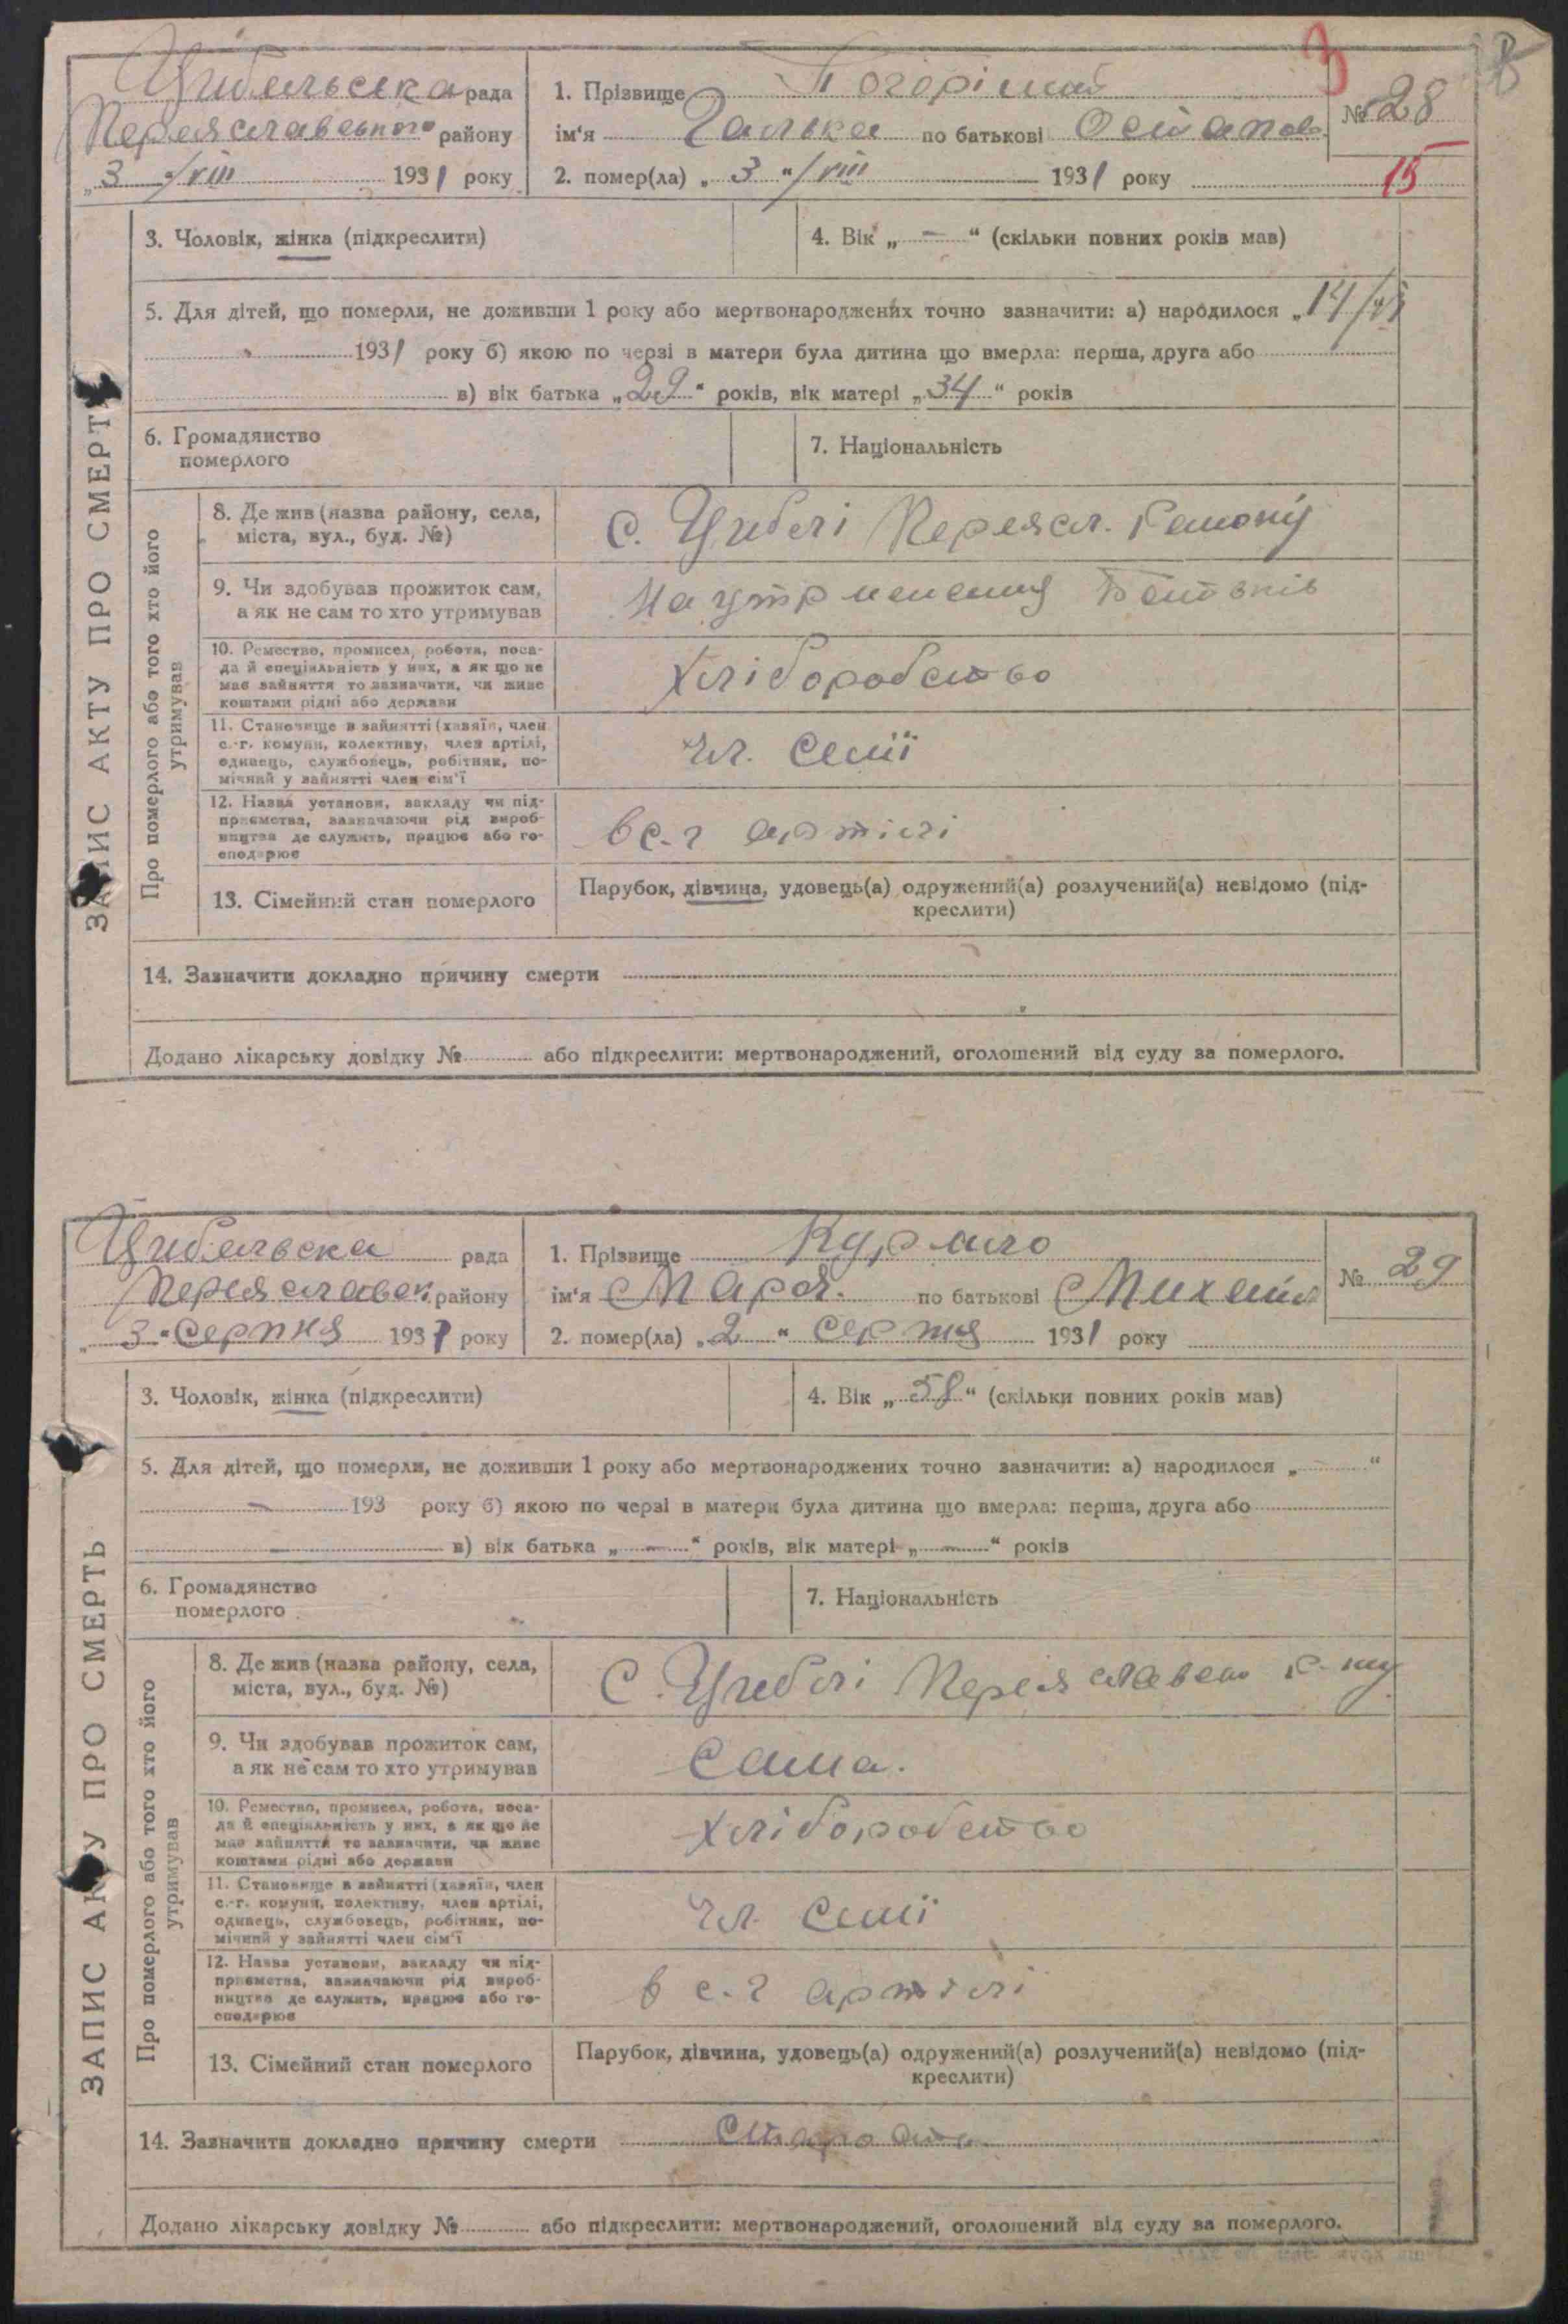 3
Цибельська рада
Переяславського району
"3 "/VIII 1931 року
1. Прізвище Погоріший
ім'я Галька по батькові Остапов.
2. помер(ла) „ 3 "/VIII 1931 року
№ 28
15
ЗАПИС АКТУ ПРО СМЕРТЬ
3. Чоловік, жінка (підкреслити)
4. Вік „ — “ (скільки повних років мав)
5. Для дітей, що померли, не доживши 1 року або мертвонароджених точно зазначити: а) народилося „ 14/VI
1931 року б) якою по черзі в матери була дитина що вмерла: перша, друга або
в) вік батька „ 29 “ років, вік матері „ 34 “ років
6. Громадянство
померлого
7. Національність
Про померлого або того хто його
утримував
8. Де жив (назва району, села,
міста, вул., буд. №)
с. Циблі Переясл. Району
9. Чи здобував прожиток сам,
а як не сам то хто утримував
На утрименеция Батьків
10. Ремество, промисел, робота, поса-
да й спеціяльність у них, а як що не
має зайняття то зазначити, чи живе
коштами рідні або держави
Хліборобство
11. Становище в зайнятті (хазяїн, член
с.-г. комуни, колективу, член артілі,
одинець, службовець, робітник, по-
мічний у зайнятті член сім'ї
чл. семї
12. Назва установи, закладу чи під-
приємства, зазначаючи рід вироб-
ництва де служить, працює або го-
сподарює
в с.-г артілі
13. Сімейний стан померлого
Парубок, дівчина, удовець(а) одружений(а) розлучений(а) невідомо (під-
креслити)
14. Зазначити докладно причину смерти
Додано лікарську довідку № або підкреслити: мертвонароджений, оголошений від суду за померлого.
Цибельська рада
Переяславськ. району
„ 3 “ Серпня 1931 року
1. Прізвище Курило
ім'я Мария. по батькові Михайл
2. помер(ла) „ 2 “ серпня 1931 року
№ 29
ЗАПИС АКТУ ПРО СМЕРТЬ
3. Чоловік, жінка (підкреслити)
4. Вік „ 58 “ (скільки повних років мав)
5. Для дітей, що померли, не доживши 1 року або мертвонароджених точно зазначити: а) народилося „ “
— 193 року б) якою по черзі в матери була дитина що вмерла: перша, друга або
в) вік батька „ — “ років, вік матері „ — “ років
6. Громадянство
померлого
7. Національність
Про померлого або того хто його
утримував
8. Де жив (назва району, села,
міста, вул., буд. №)
с. Циблі Переяславськ р-ну
9. Чи здобував прожиток сам,
а як не сам то хто утримував
сама.
10. Ремество, промисел, робота, поса-
да й спеціяльність у них, а як що не
має зайняття то зазначити, чи живе
коштами рідні або держави
Хліборобство
11. Становище в зайнятті (хазяїн, член
с.-г. комуни, колективу, член артілі,
одинець, службовець, робітник, по-
мічний у зайнятті член сім'ї
чл. семї
12. Назва установи, закладу чи під-
приємства, зазначаючи рід вироб-
ництва де служить, працює або го-
сподарює
в с.-г артілі
13. Сімейний стан померлого
Парубок, дівчина, удовець(а) одружений(а) розлучений(а) невідомо (під-
креслити)
14. Зазначити докладно причину смерти Старость
Додано лікарську довідку № або підкреслити: мертвонароджений, оголошений від суду за померлого.